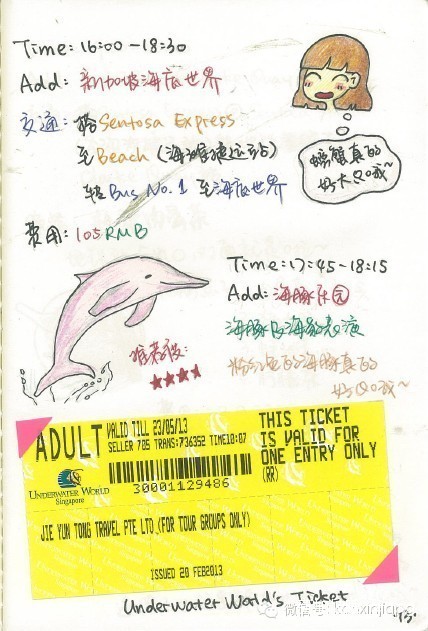 Time: 16:00-18:30
Add: 新加坡海底世界
交通: 搭Sentosa Express
至Beach (海滩捷运站)
转Bus No.1 至海底世界
费用: 105RMB
螃蟹真的
好大只哦~
Time: 17:45-18:15
Add: 海豚乐园
海豚&海狗表演
粉红色的海豚真的
好Q哦~
推荐度:
★★★★
ADULT
VALID TILL 23/05/13
SELLER 705 TRANS:736352 TIME10:07
30001129486
THIS TICKET
IS VALID FOR
ONE ENTRY ONLY
(RR)
UNDERWATER WORLD
Singapore
JIE YUN TONG TRAVEL PTE LTD (FOR TOUR GROUPS ONLY)
ISSUED 20 FEB2013
Underwater World's Ticket